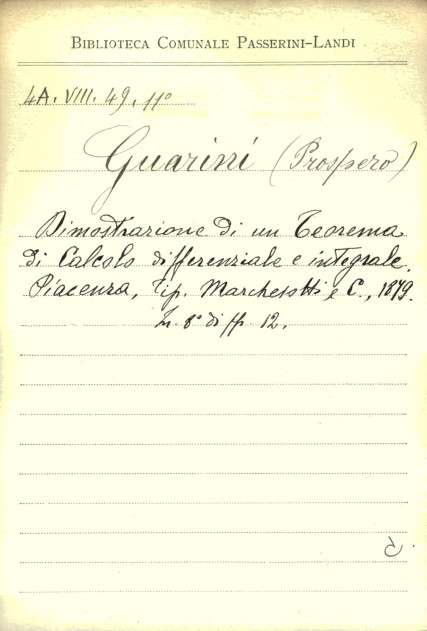 BIBLIOTECA COMUNALE PASSERINI-LANDI
4A. VIII. 49. 11º
Guarini (Prospero)
Dimostrazione di un Teorema
di Calcolo differenziale e integrale.
Piacenza, Tip. Marchesotti e C., 1879.
In 8º di pp. 12.